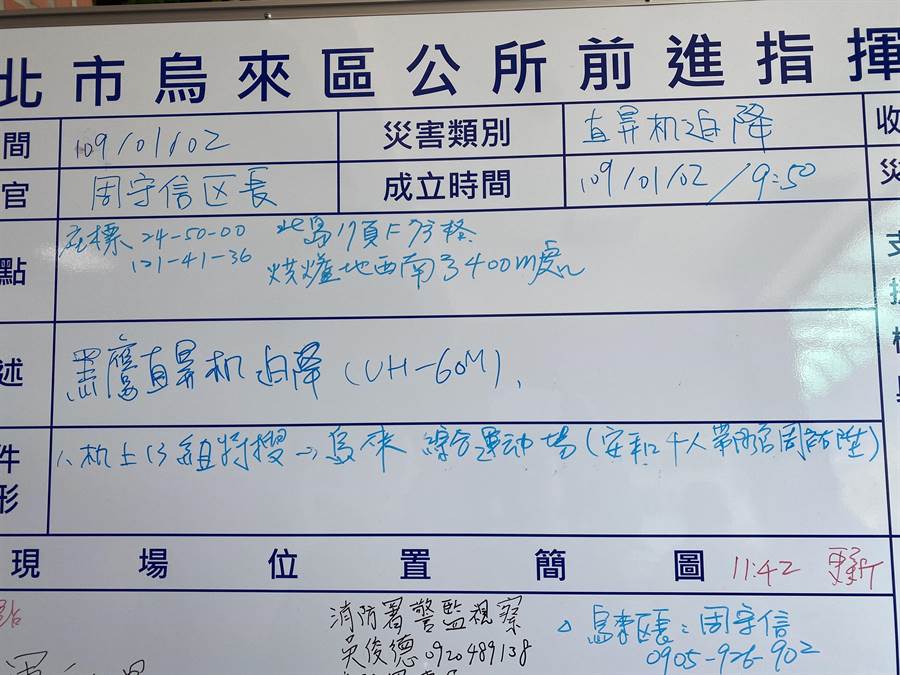 北市烏來區公所前進指揮
間 109/01/02 災害類別 直昇机迫降 收
官 周守信区長 成立時間 109/01/02/9:50 災
點 座標 24-50-00
121-41-36
烘爐地西南方400m處
支
援
述 黑鷹直昇机迫降(UH-60M).
件 1、机上13 組特搜→烏來 綜合運动場
形
現場位置簡圖 11:42 更新
點
消防署警監視察
吳俊德0920489138
△ 烏來區長:周守信
0905-926-902